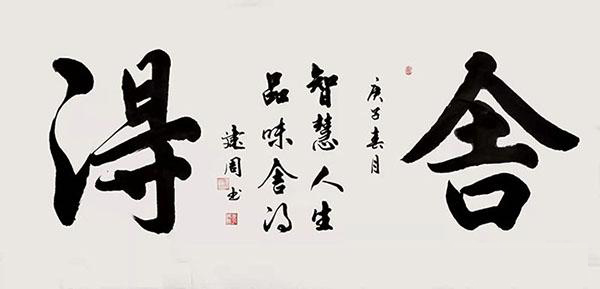 舍得
庚子春月
智慧人生
品味舍得
建周书